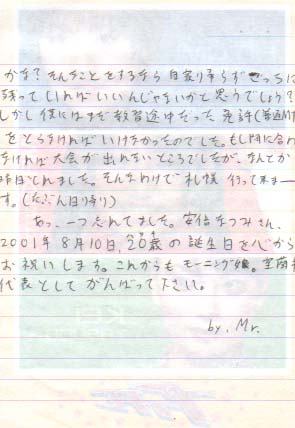 かな?そんなことをするなら目家り帰らずせっちに
残っていればいいんじゃないかと思うでしょう?
しかし僕にはまだ教習途中だった免許(普通MT
をとらなければいけなかったのでした。もし間に合わ
なければ大会が出れないところでしたが、なんとか
昨日とれました。そんなわけで札幌行って来まー
す。(たぶん日帰り)
あっ、一つ忘れてました。安倍なつみさん、
2001年8月10日,20歳の誕生日を心から
お祝いします。これからもモーニング娘。室蘭
代表としてがんばって下さい。
by, Mr.